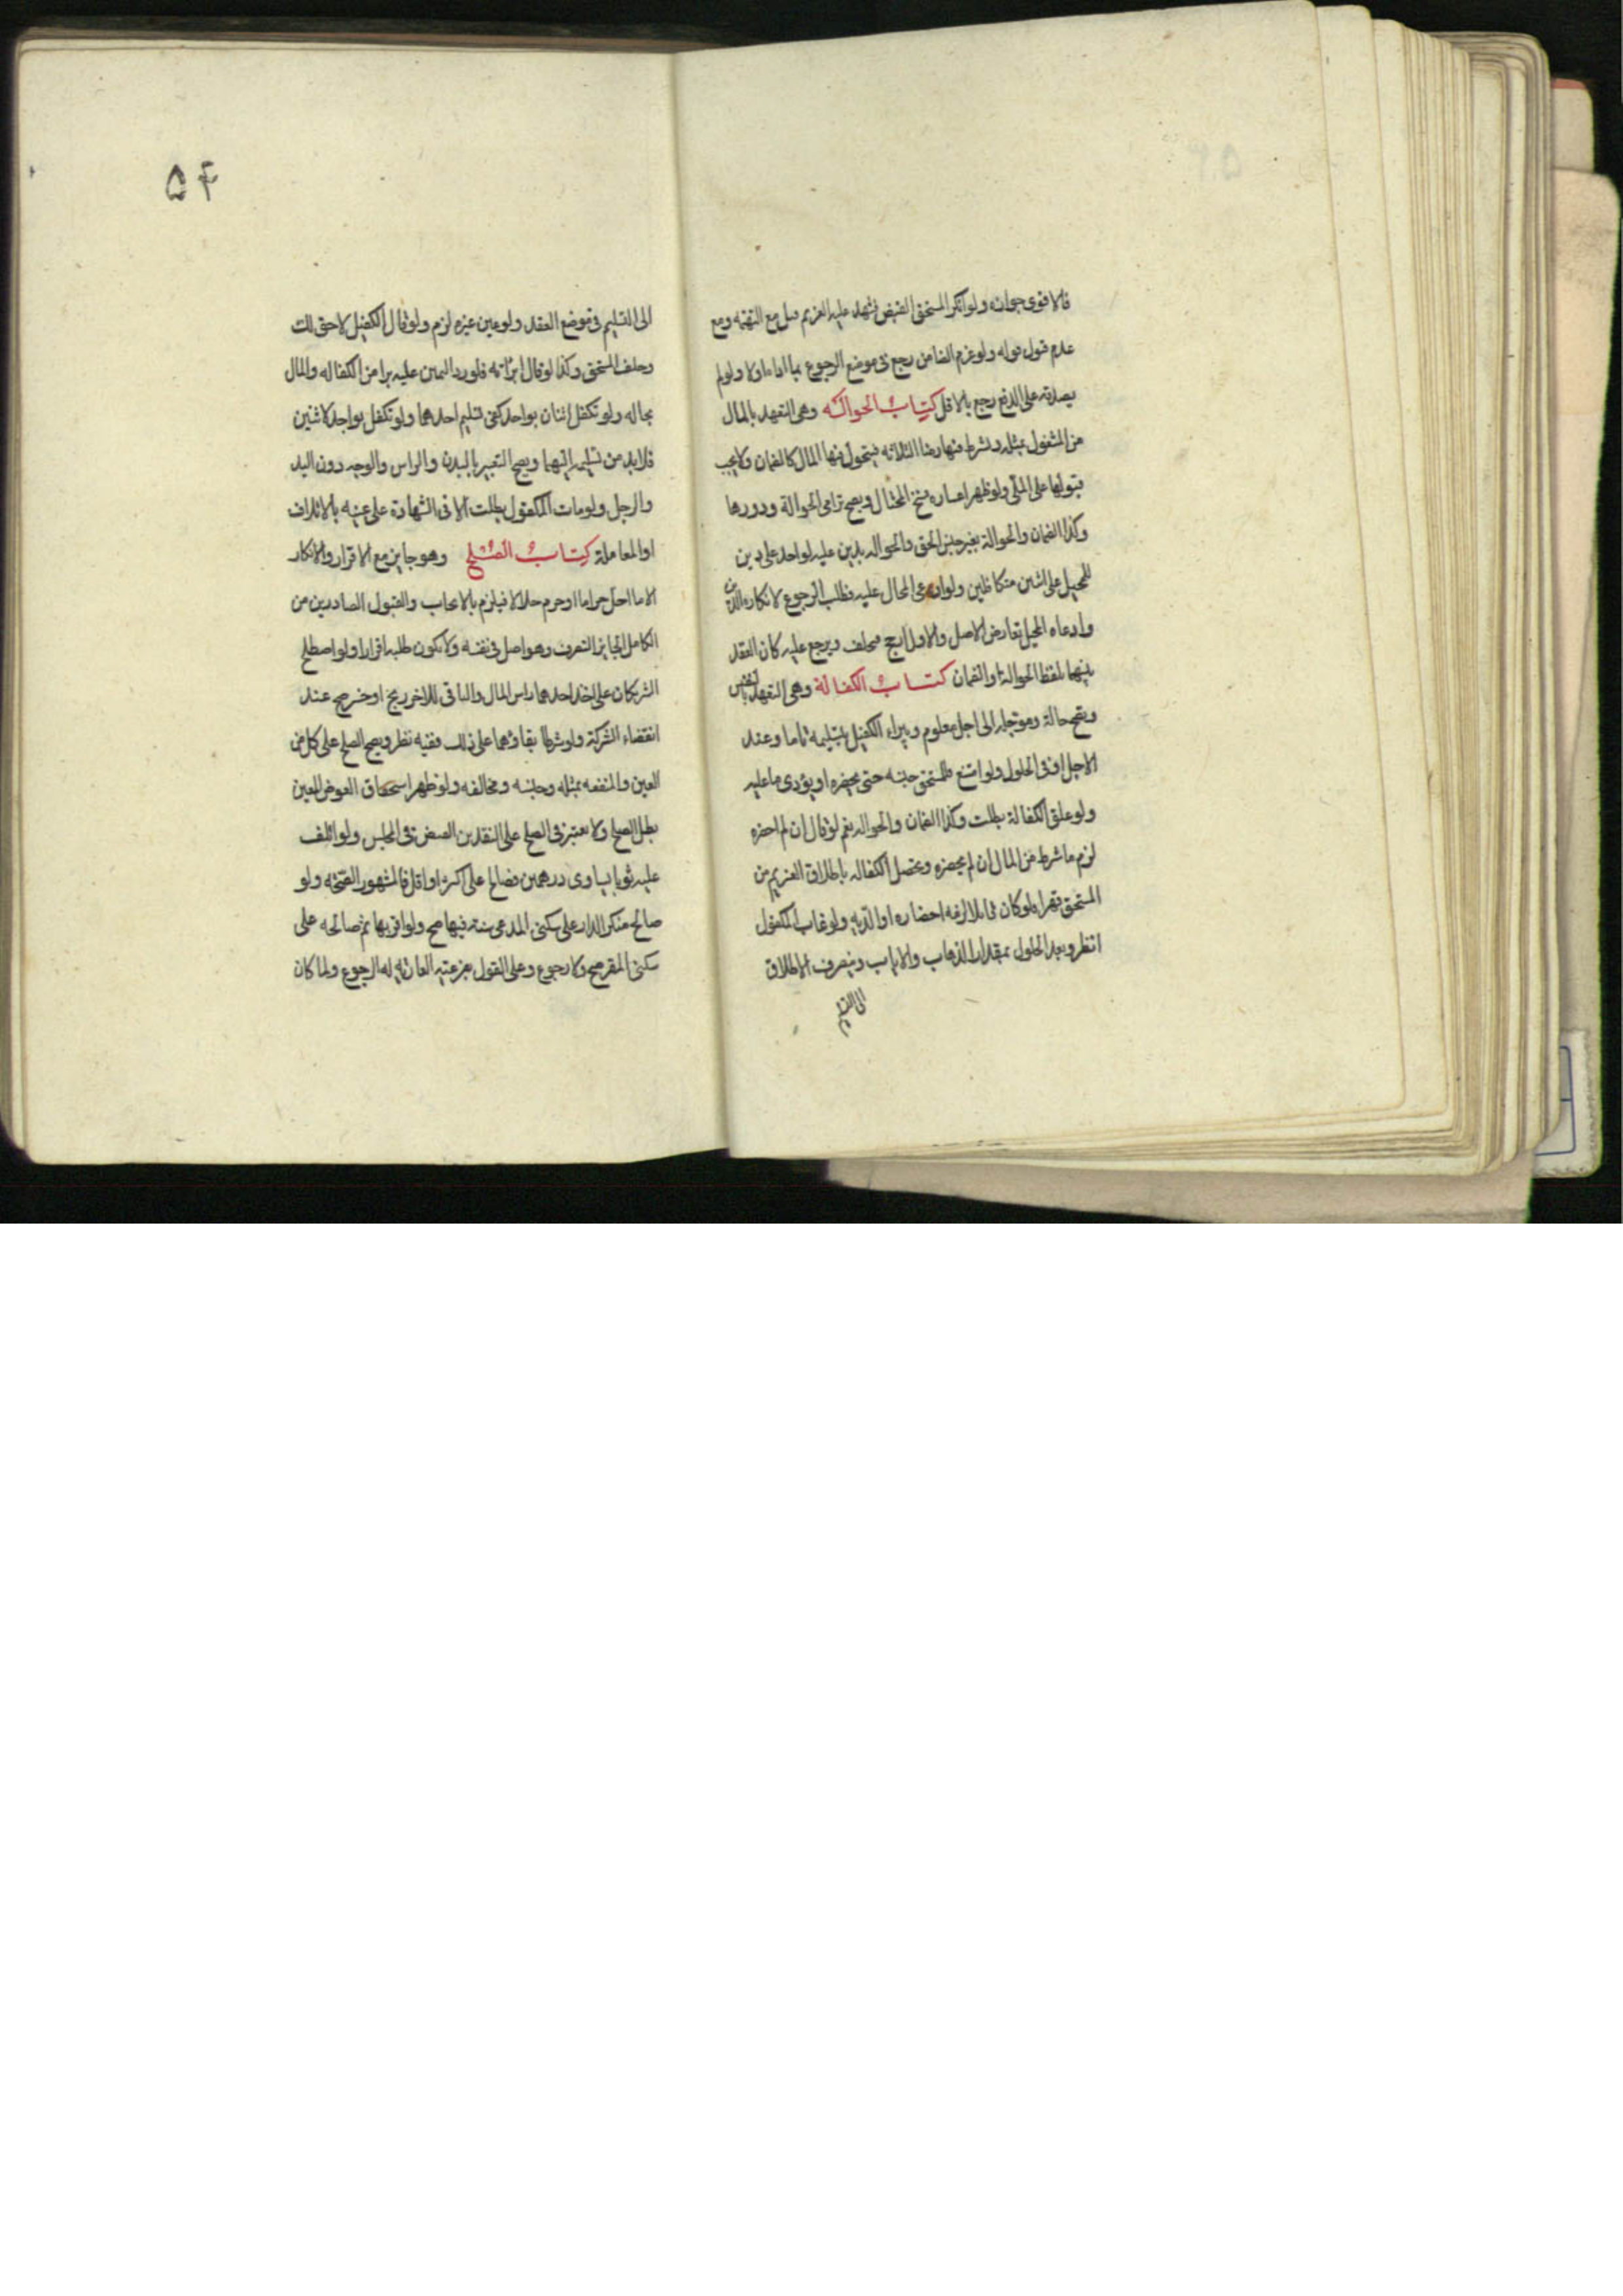 فالاقوى جوازه ولو انكر المستحق القبض فشهد عليه الغريم قبل مع التهمة ومع
عدم قبول قوله ولو غرم الضامن رجع في موضع الرجوع بما اداه اولا ولو لم
يصدقه على الدفع رجع بالاقل كتاب الحوالة وهى التعهد بالمال
من المشغول بمثله ويشترط فيها رضا الثلاثة فيتحول فيها المال كالضمان ولا يجب
قبولها على الملى ولو ظهر اعساره فسخ المحتال ويصح ترامى الحوالة ودورها
وكذا الضمان والحوالة بغير جنس الحق والحوالة بدين عليه لواحد على دين
للمحيل على اثنين متكافلين ولو ادعى المحال عليه وطلب الرجوع لانكاره الدين
وادعاه المحيل تعارض الاصل والاول ارجح فيحلف ويرجع عليه كان العقد
بينهما بلفظ الحوالة او الضمان كتاب الكفالة وهى التعهد بالنفس
ويصح حالة وموجلة الى اجل معلوم ويبراء الكفيل بتسليمه تاما وعند
الاجل او في الحلول ولو امتنع فللمستحق حبسه حتى يحضره او يؤدى ما عليه
ولو علق الكفالة بطلت وكذا الضمان والحوالة نعم لو قال ان لم احضره
لزم ما شرط من المال ان لم يحضره وتحصل الكفالة باطلاق الغريم من
المستحق قهرا فلو كان قاتلا لزمه احضاره او الدية ولو غاب المكفول
انظر وبعد الحلول بمقدار الذهاب والاياب وينصرف الاطلاق
الى التسليم
۵۴
الى التسليم في موضع العقد ولو عين غيره لزم ولو قال الكفيل لا حق لك
وحلف المستحق وكذا لو قال ابراته فلو رد اليمين عليه برا من الكفالة والمال
بحاله ولو تكفل اثنان بواحد كفى تسليم احدهما ولو تكفل بواحد لاثنين
فلا بد من تسليمه اليهما ويصح التعبير بالبدن والراس والوجه دون اليد
والرجل ولو مات المكفول بطلت الا في الشهادة على عينه بالاتلاف
او المعاملة كتاب الصلح وهو جايز مع الاقرار والانكار
الا ما احل حراما او حرم حلالا فيلزم بالايجاب والقبول الصادرين من
الكامل الجايز التصرف وهو اصل في نفسه ولا يكون طلبه اقرارا ولو اصطلح
الشريكان على اخذ احدهما راس المال والباقى للاخر ربح او خسر صح عند
انقضاء الشركة ولو شرطا بقاؤهما على ذلك ففيه نظر ويصح الصلح على كل من
العين والمنفعة بمثله وجنسه ومخالفه ولو ظهر استحقاق العوض المعين
بطل الصلح ولا يعتبر في الصلح على النقدين القبض في المجلس ولو اتلف
عليه ثوبا يساوى درهمين فصالح على اكثر او اقل فالمشهور الصحة ولو
صالح منكر الدار على سكنى المدعى سنة فيها صح ولو اقر بها ثم صالحه على
سكنى المقر صح ولا رجوع وعلى القول بفرعيته العارية له الرجوع ولما كان